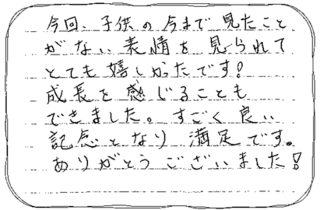 今回、子供の今まで見たこと
がない表情を見られて
とても嬉しかったです!
成長を感じることも
できました。すごく良い
記念となり満足です。
ありがとうございました!